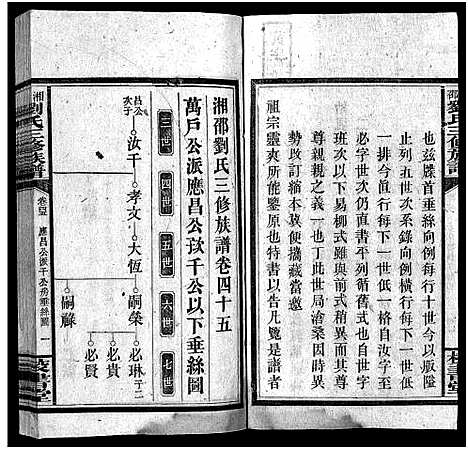 邵劉氏三修族譜
也茲牒首垂絲向例每行十世今以版隘
止列五世次系錄向例橫行每下一世低
一排今眞行每下一世低一格自汝字至
必字世次仍直書平列循舊式也自世字
班次以下易柳式雖與前式稍異而其尊
尊親親之義一也丁此世局滄桑干戈擾
勢改訂縮本裝便攜藏當邀
祖宗靈爽所能鑒原也特書以告凡覽是譜者
湘邵劉氏三修族譜卷四十五
萬戶公派應昌公孜千公以下垂絲圖
三世 四世 五世 六世 七世
昌公次子
汝千 孝文 大恆 嗣榮 必琳 子二
必貴
必賢
嗣祿
湘劉氏三修族譜
卷四十五 應昌公孜千公房垂絲圖 一